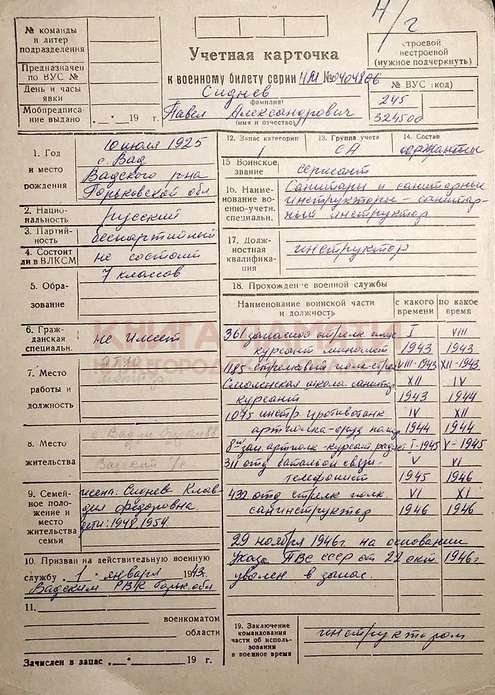 Н/г
№ команды
и литер
подразделения
Предназначен
по ВУС №
День и часы
явки
Мобпредписа-
ние выдано „ . “ 19 г.
Учетная карточка
к военному билету серии НМ №
Сиднев
фамилия
Павел Александрович
(имя и отчество)
строевой
нестроевой
(нужное подчеркнуть)
№ ВУС (код)
245
324500
1. Год
и место
рождения
10 июля 1925
с. Вад
Вадского р-на
Горьковской обл
2. Нацио-
нальность
русский
3. Партий-
ность
беспартийный
4. Состоит
ли в ВЛКСМ
не состоит
5. Обра-
зование
7 классов
6. Граж-
данская
специальн.
не имеет
7. Место
работы и
должность
8. Место
жительства
9. Семей-
ное поло-
жение и
место
жительства
семьи
жена: Сиднев Клав-
дия Федоровна.
дети: 1948, 1954
10. Призван на действительную военную
службу „ 1 “ января 1943 г.
Вадским РВК Горьк. обл
11.
военкоматом
области
Зачислен в запас „ . “ 19 г.
12. Запас категории
1
13. Группа учета
СА
14. Состав
сержанты
15 Воинское
звание
сержант
16. Наименование
воен-учетн.
специальн.
Санитары и санитарные
инструкторы - санитар-
ный инструктор
17. Долж-
ностная
квалифика-
ция
инструктор
18. Прохождение военной службы
Наименование воинской части
и должность
с какого
времени
по какое
время
361 запасной стрелк. полк I VIII
курсант миномет 1943 1943
1185 стрелковый полк - стрел VIII-1943 XII-1943
Смоленская школа санитар XII IV
курсант 1943 1944
1075 истр противотанк IV XII
артполка - оруд. ном 1944 1944
8ой зап. артполк - курсант, радио I-1945 V-1945
311 отд батальон связи V VI
телефонист 1945 1946
432 отд стрелк полк. VI XI
санинструктор 1946 1946
29 ноября 1946г. на основании
Указа ПВС СССР от 22 окт. 1946г.
уволен в запас.
19. Заключение
командования
части об исполь-
зовании
в военное время
инструктором